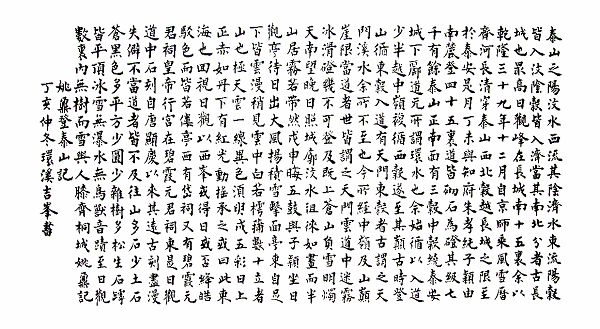 泰山之陽汶水西流其陰濟水東流陽穀
皆入汶陰穀皆入濟當其南北分者古長
城也最高日觀峰在長城南十五裏余以
乾隆三十九年十二月自京師乘風雪曆
齊河長清穿泰山西北穀越長城之限至
於泰安是月丁未與知府朱孝純子潁由
南麓登四十五裏道皆砌石為磴其級七
千有餘泰山正南面有三穀中穀繞泰安
城下酈道元所謂環水也余始循以入道
少半越中嶺複循西穀遂至其巔古時登
山循東穀入道有天門東穀者古謂之天
門溪水余所不至也今所經中嶺及山巔
崖限當道者世皆謂之天門雲道中迷霧
冰滑磴幾不可登及既上蒼山負雪明燭
天南望晚日照城廓汶水徂徠如畫而半
山居霧若帶然戊申晦五鼓與子潁坐日
觀亭待日出大風揚積雪擊面亭東自足
下皆雲漫稍見雲中白若摴蒱數十立者
山也極天雲一線異色須臾成五彩日上
正赤如丹下有紅光動搖承之或曰此東
海也回視日觀以西峰或得日或否絳皓
駁色而皆若僂亭西有岱祠又有碧霞元
君祠皇帝行宮在碧霞元君祠東是日觀
道中石刻自唐顯慶以來其遠古刻盡漫
失僻不當道者皆不及往山多石少土石
蒼黑色多平方少圜少雜樹多松生石罅
皆平頂冰雪無瀑水無鳥獸音蹟至日觀
數裏內無樹而雪與人膝齊桐城姚鼐記
姚鼐登泰山記
丁亥仲冬環溪吉峯書